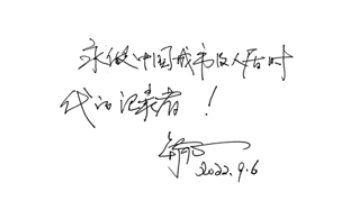 永做中国城市及人居时
代的记录者！
2022.9.6